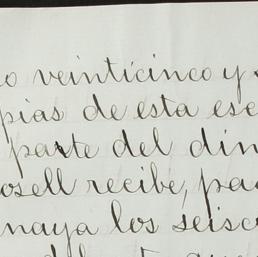 o veinticinco y
pias de esta ese
parte del din
osell recibe, pa
naya los seisc